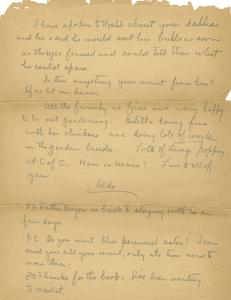 I have spoken to about your dahlias
and he said he would sort his bulbs as soon
as they formed and could tell then what
he could spare.
Is there anything you want from here?
If so let me know.
All the family is fine and very happy
to be out gardening. doing fine
with his chickens and doing lots of work
in the garden besides. Lots of things popping
at C of C. How is ? Love to all of
you
Aldo
P.S. is back & staying with us a
few days
P.S. Do you want blue perennial aster? I can
send you all you want, only its time now to
move them.
P.S. Thanks for the book. I've been wanting
to read it.